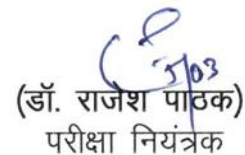 5/03
(डॉ. राजेश पाठक)
परीक्षा नियंत्रक